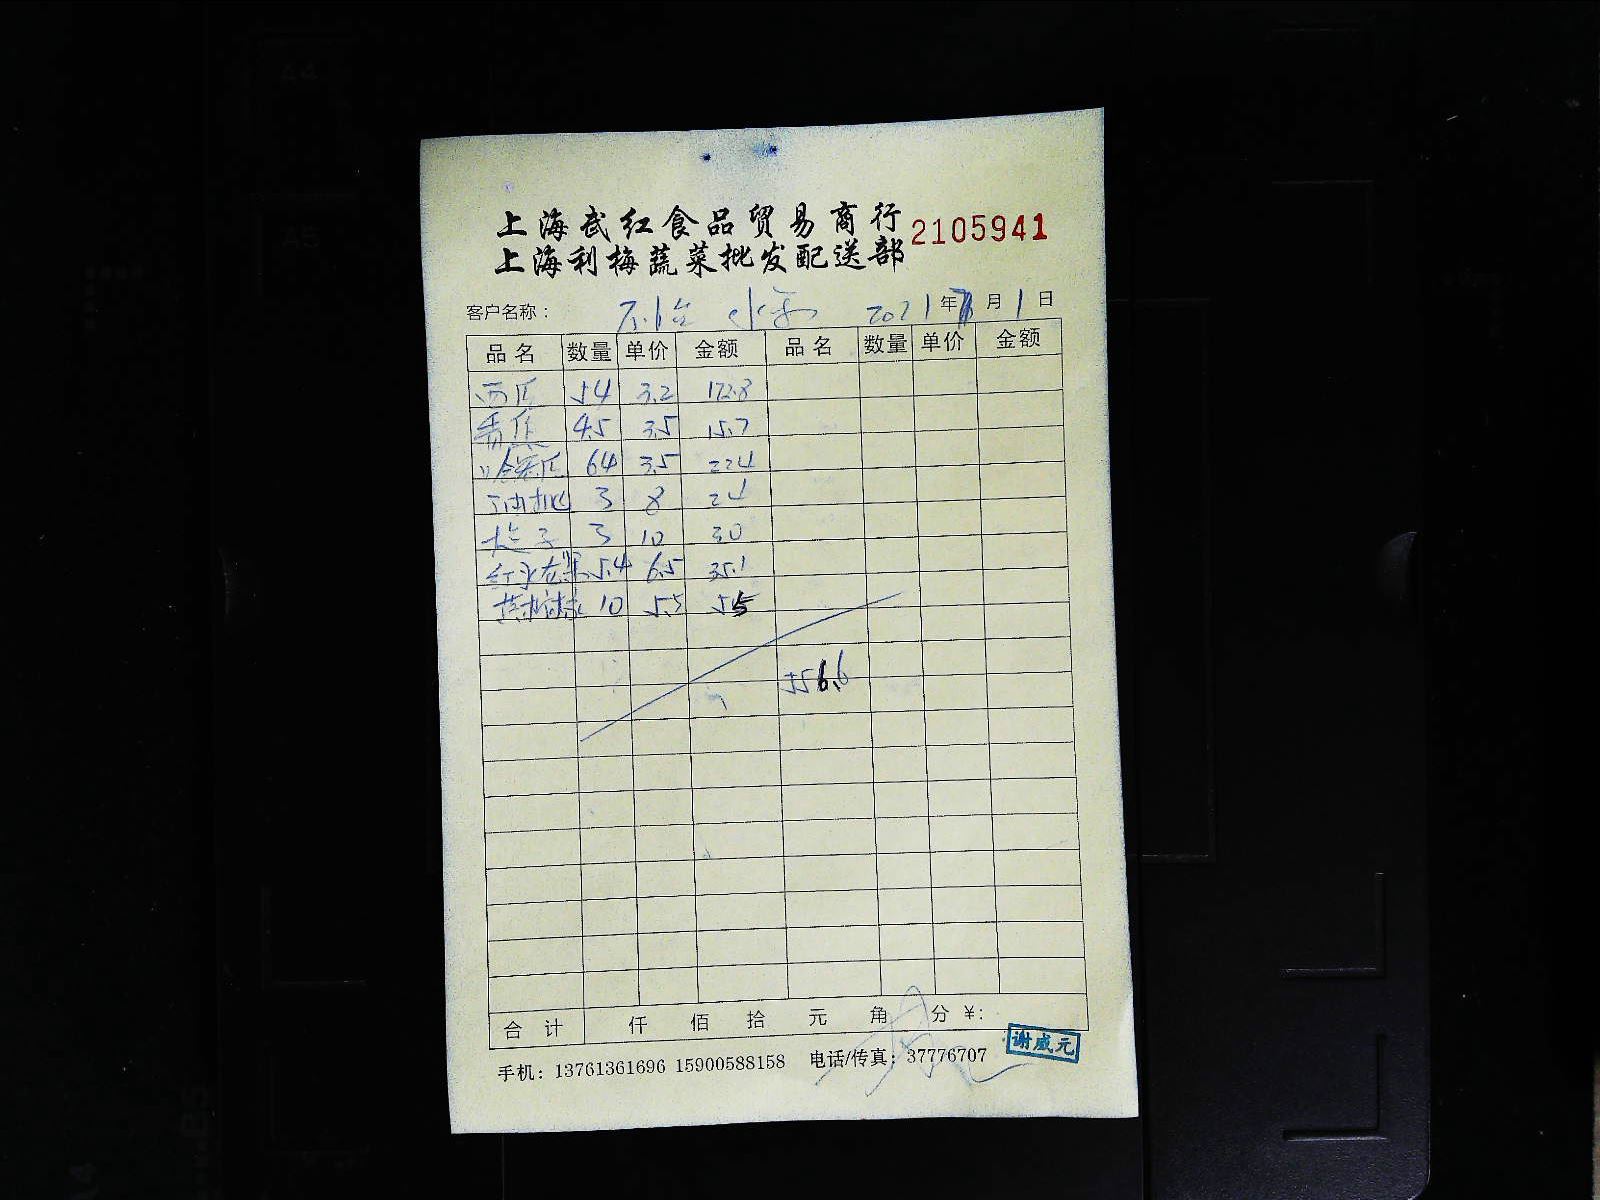 上海武红食品贸易商行 2105941
上海利梅蔬菜批发配送部
客户名称： 水果 2021年7月1日
品名 数量 单价 金额 品名 数量 单价 金额
西瓜 54 3.2 172.8
香蕉 4.5 3.5 15.7
哈密瓜 64 3.5 224
油桃 3 8 24
桔子 3 10 30
红火龙果 5.4 6.5 35.1
10 5.5 55
556.6
合计 仟 佰 拾 元 角 分 ¥:
手机：13761361696 15900588158 电话/传真：37776707
谢威元